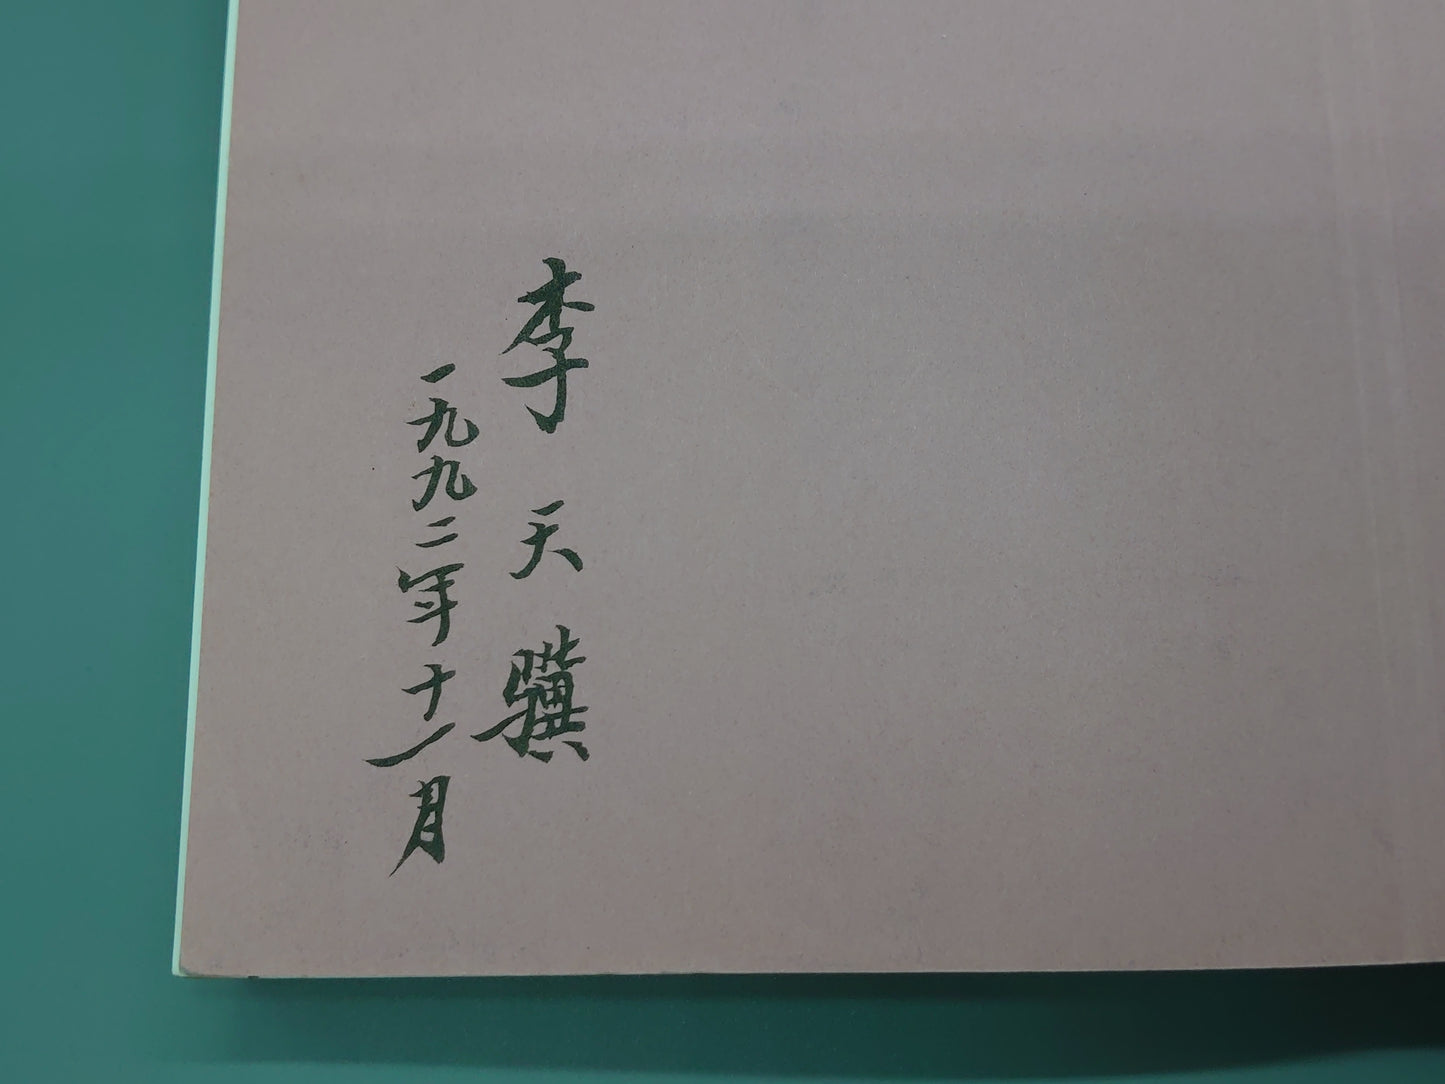 李天骥
一九九二年十一月